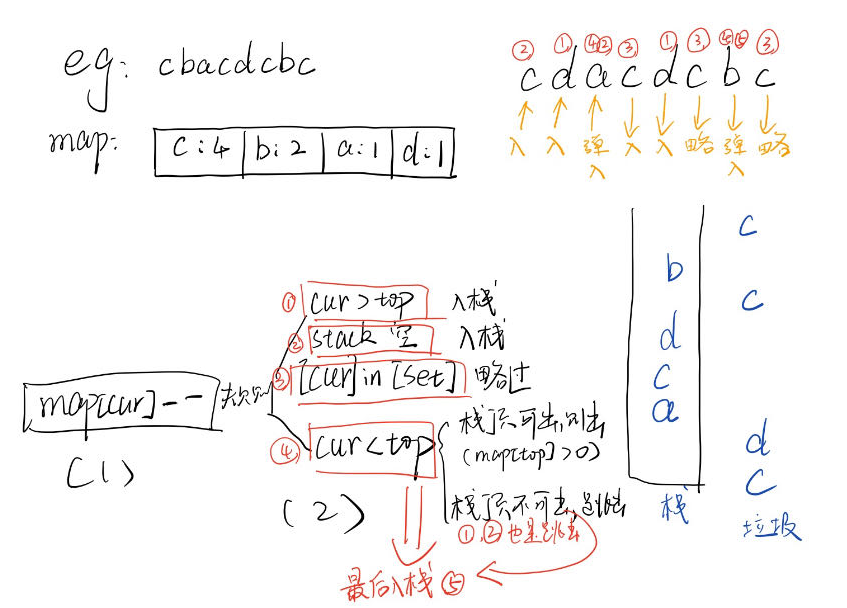 eg: cbacdcbc
map: c:4 b:2 a:1 d:1
② ① ④② ③ ① ③ ④⑤ ③
c d a c d c b c
入 入 弹入 入 入 略 弹入 略
① cur>top 入栈
② stack 空 入栈
③ [cur] in [set] 略过
map[cur]--
(1)
④ cur<top
栈顶可出,则出
(map[top]>0)
栈顶不可出,跳出
①,②也是跳出
(2)
最后入栈⑤
b
d
c
a
栈
c
c
d
c
垃圾